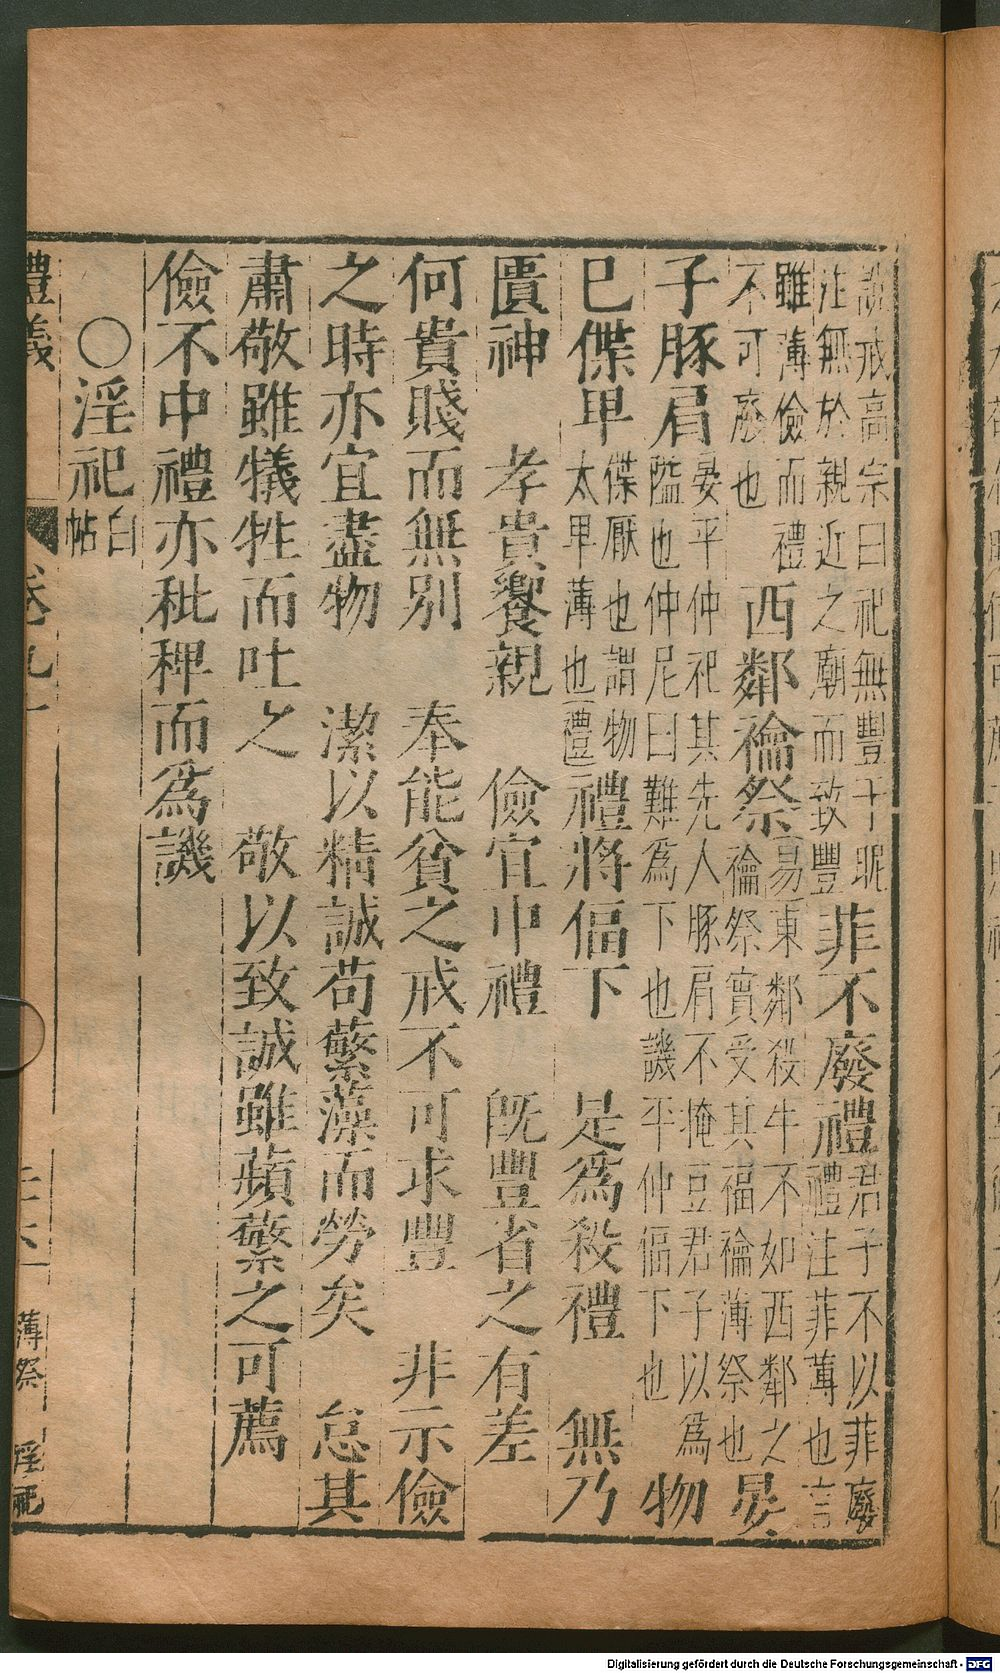 戒高宗曰祀無豐于昵
注無於親近之廟而致豐
菲不廢禮
君子不以菲廢
禮注菲薄也言
雖薄儉而禮
不可廢也
西鄰禴祭
易東鄰殺牛不如西鄰之
禴祭實受其福禴薄祭也
晏
子豚肩
晏平仲祀其先人豚肩不掩豆君子以為
隘也仲尼曰難為下也譏平仲偪下也
物
巳偞卑
偞厭也謂物
太卑薄也禮
禮將偪下 是為殺禮 無乃
匱神 孝貴饗親 儉宜中禮 既豐省之有差
何貴賤而無別 奉能貧之戒不可求豐 非示儉
之時亦宜盡物 潔以精誠苟蘩藻而勞矣 怠其
肅敬雖犧牲而吐之 敬以致誠雖蘋蘩之可薦
儉不中禮亦秕稗而為譏
○淫祀 白帖
禮義 卷九十 薄祭 淫祀
Digitalisierung gefördert durch die Deutsche Forschungsgemeinschaft - DFG